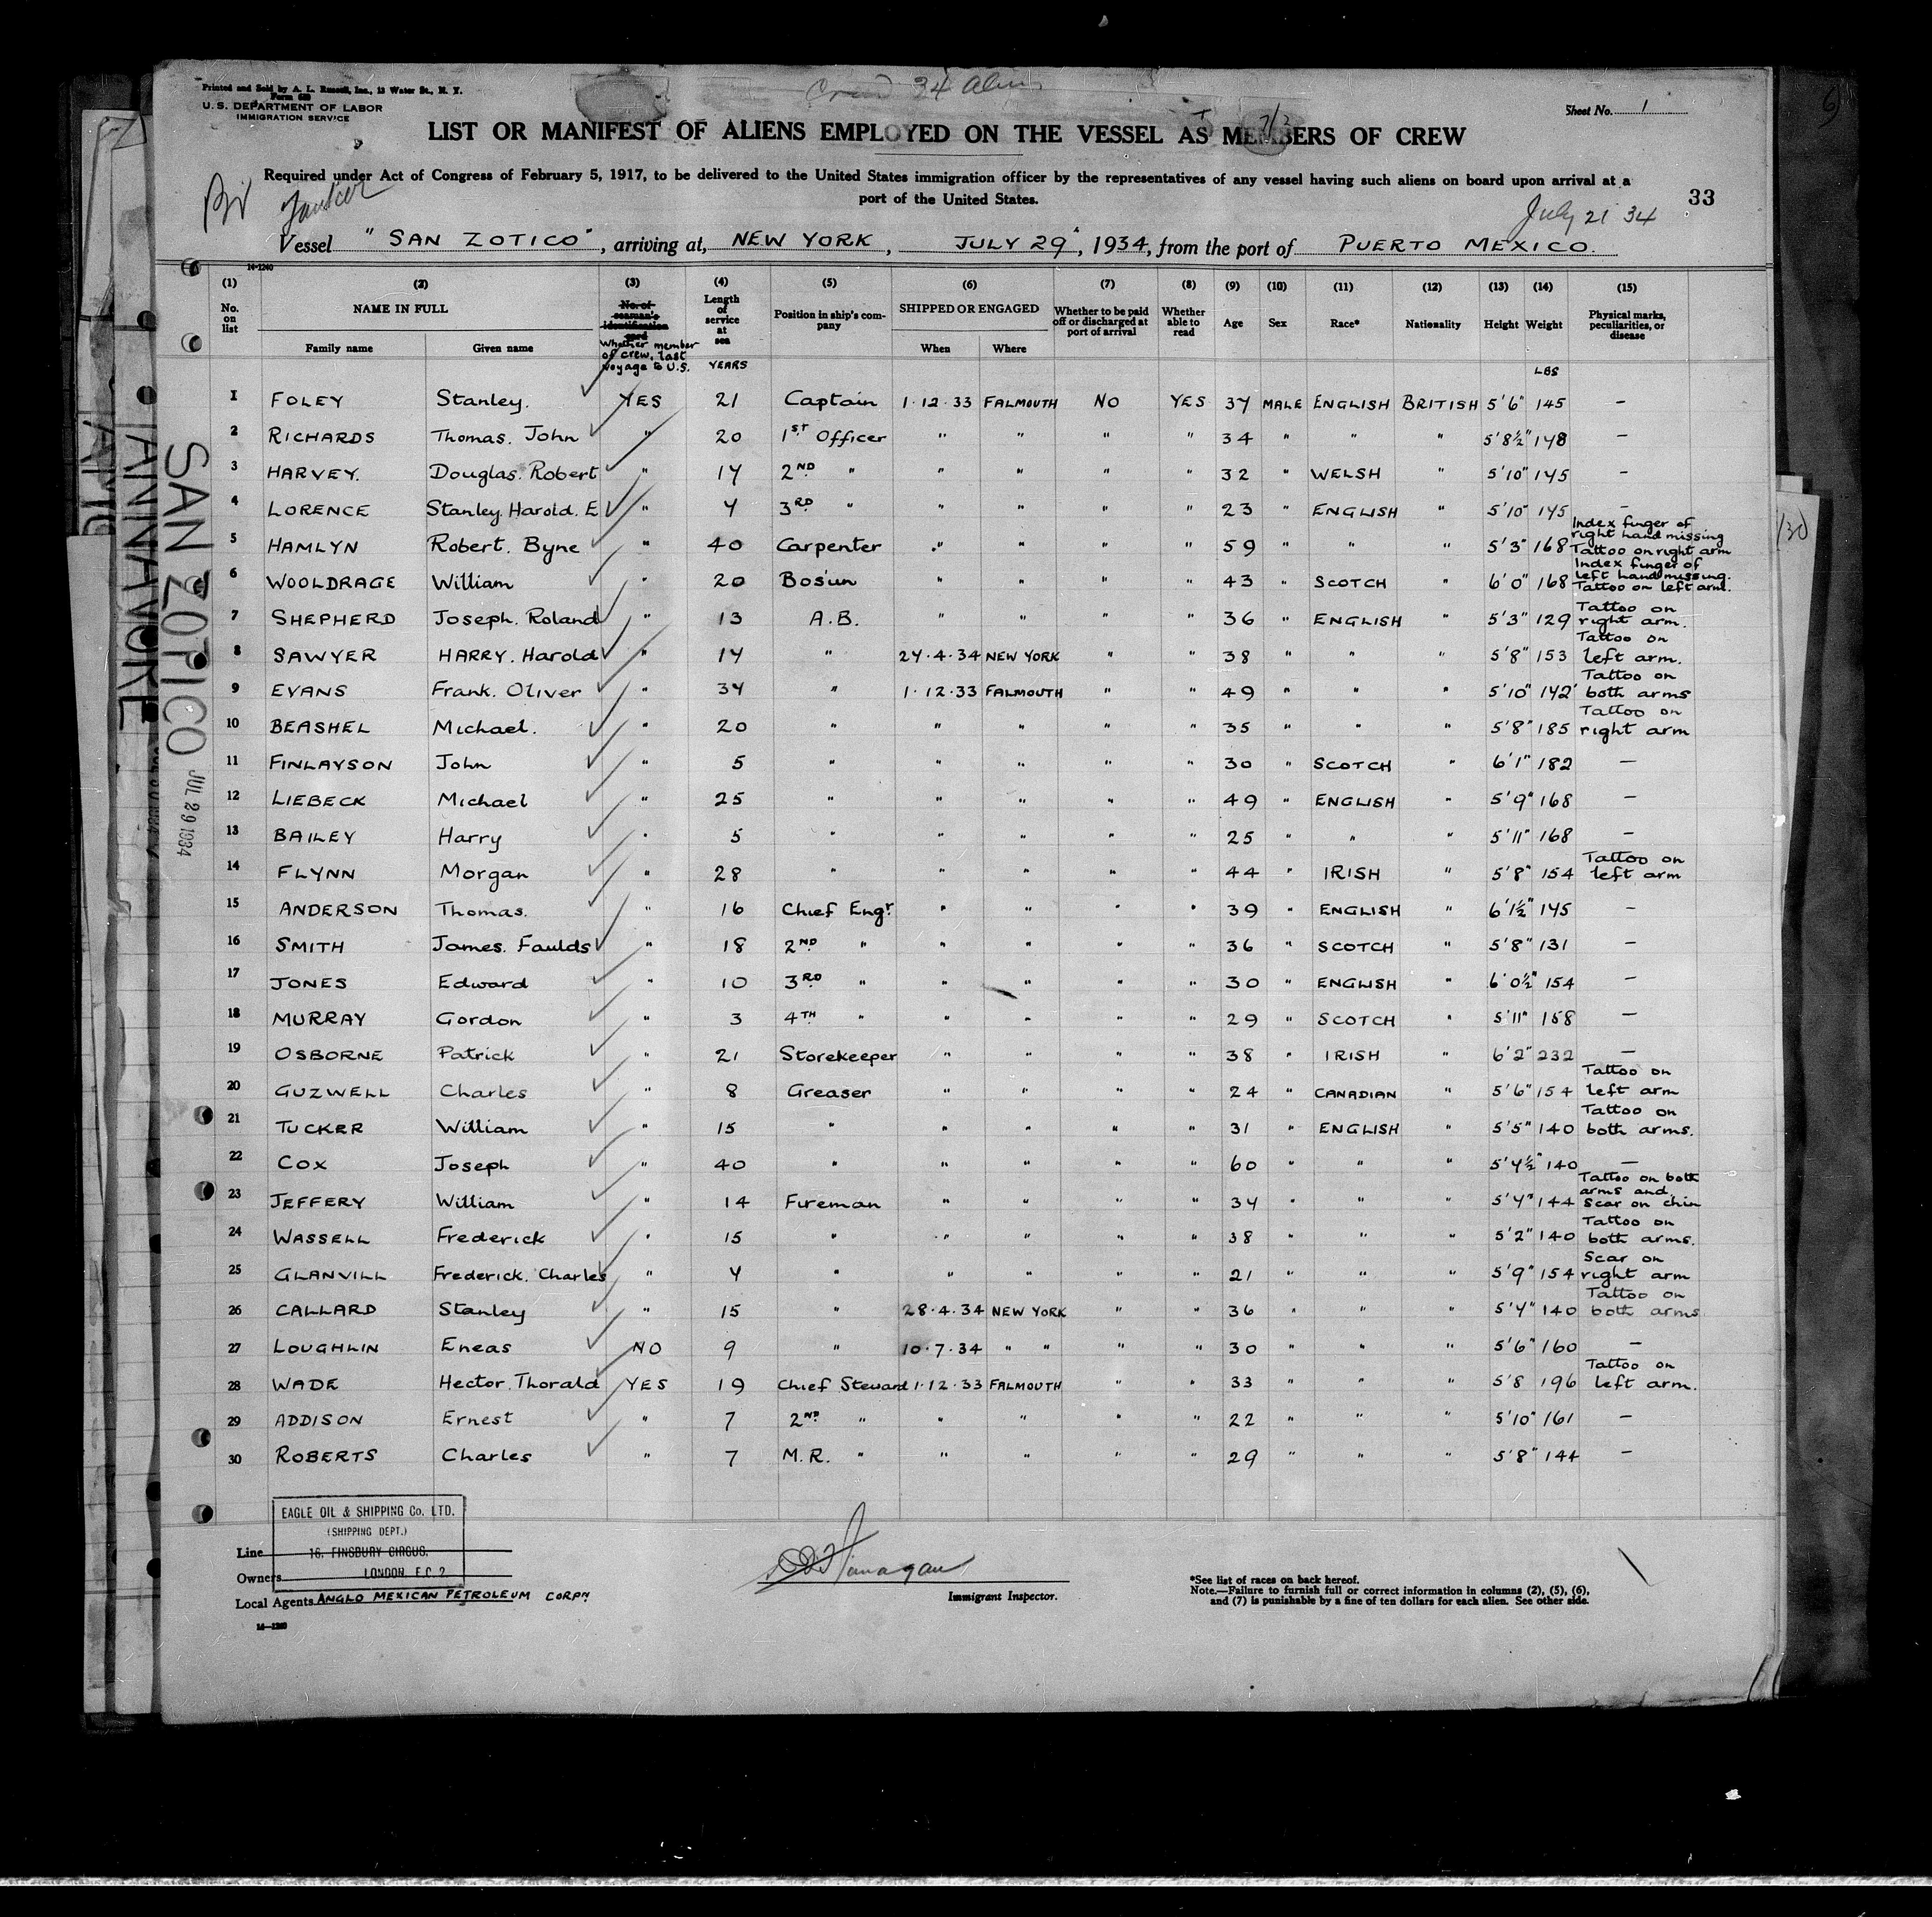 Printed and Sold by A. L. Russell, Inc., 13 Water St., N. Y.
U.S. DEPARTMENT OF LABOR
IMMIGRATION SERVICE
34
Sheet No. 1
LIST OR MANIFEST OF ALIENS EMPLOYED ON THE VESSEL AS MEMBERS OF CREW
Required under Act of Congress of February 5, 1917, to be delivered to the United States immigration officer by the representatives of any vessel having such aliens on board upon arrival at a
port of the United States.
33
July 21 34
Vessel "SAN ZOTICO", arriving at, NEW YORK, JULY 29", 1934, from the port of PUERTO MEXICO.
14-1240
(1) (2) (3) (4) (5) (6) (7) (8) (9) (10) (11) (12) (13) (14) (15)
No. on list NAME IN FULL Family name Given name No. of seaman's identification card Whether member of crew, last voyage to U.S. Length of service at sea YEARS Position in ship's company SHIPPED OR ENGAGED When Where Whether to be paid off or discharged at port of arrival Whether able to read Age Sex Race* Nationality Height Weight LBS Physical marks, peculiarities, or disease
1 FOLEY Stanley. YES 21 Captain 1.12.33 FALMOUTH NO YES 37 MALE ENGLISH BRITISH 5'6" 145 —
2 RICHARDS Thomas. John " 20 1ST Officer " " " " 34 " " " 5'8½" 148 —
3 HARVEY. Douglas. Robert " 17 2ND " " " " " 32 " WELSH " 5'10" 145 —
4 LORENCE Stanley. Harold. E " 4 3RD " " " " " 23 " ENGLISH " 5'10" 145 —
5 HAMLYN Robert. Byne " 40 Carpenter " " " " 59 " " " 5'3" 168 Index finger of right hand missing Tattoo on right arm
6 WOOLDRAGE William " 20 Bosun " " " " 43 " SCOTCH " 6'0" 168 Index finger of left hand missing. Tattoo on left arm.
7 SHEPHERD Joseph. Roland " 13 A.B. " " " " 36 " ENGLISH " 5'3" 129 Tattoo on right arm.
8 SAWYER HARRY. Harold " 14 " 27.4.34 NEW YORK " " 38 " " " 5'8" 153 Tattoo on left arm.
9 EVANS Frank. Oliver " 34 " 1.12.33 FALMOUTH " " 49 " " " 5'10" 142 Tattoo on both arms
10 BEASHEL Michael. " 20 " " " " " 35 " " " 5'8" 185 Tattoo on right arm
11 FINLAYSON John " 5 " " " " " 30 " SCOTCH " 6'1" 182 —
12 LIEBECK Michael " 25 " " " " " 49 " ENGLISH " 5'9" 168 —
13 BAILEY Harry " 5 " " " " " 25 " " " 5'11" 168 —
14 FLYNN Morgan " 28 " " " " " 44 " IRISH " 5'8" 154 Tattoo on left arm
15 ANDERSON Thomas. " 16 Chief Engr " " " " 39 " ENGLISH " 6'1½" 145 —
16 SMITH James. Faulds " 18 2ND " " " " " 36 " SCOTCH " 5'8" 131 —
17 JONES Edward " 10 3RD " " " " " 30 " ENGLISH " 6'0½" 154 —
18 MURRAY Gordon " 3 4TH " " " " " 29 " SCOTCH " 5'11" 158 —
19 OSBORNE Patrick " 21 Storekeeper " " " " 38 " IRISH " 6'2" 232 —
20 GUZWELL Charles " 8 Greaser " " " " 24 " CANADIAN " 5'6" 154 Tattoo on left arm
21 TUCKER William " 15 " " " " " 31 " ENGLISH " 5'5" 140 Tattoo on both arms.
22 COX Joseph " 40 " " " " " 60 " " " 5'4½" 140 —
23 JEFFERY William " 14 Fireman " " " " 34 " " " 5'4" 144 Tattoo on both arms and. Scar on chin
24 WASSELL Frederick " 15 " " " " " 38 " " " 5'2" 140 Tattoo on both arms.
25 GLANVILL Frederick. Charles " 4 " " " " " 21 " " " 5'9" 154 Scar on right arm
26 CALLARD Stanley " 15 " 28.4.34 NEW YORK " " 36 " " " 5'4" 140 Tattoo on both arms
27 LOUGHLIN Eneas NO 9 " 10.7.34 " " " " 30 " " " 5'6" 160 —
28 WADE Hector. Thorald YES 19 Chief Steward 1.12.33 FALMOUTH " " 33 " " " 5'8 196 Tattoo on left arm.
29 ADDISON Ernest " 7 2ND " " " " " 22 " " " 5'10" 161 —
30 ROBERTS Charles " 7 M.R. " " " " " 29 " " " 5'8" 144 —
SAN ZOTICO JUL 29 1934
ANNAVORE
EAGLE OIL & SHIPPING Co. LTD.
(SHIPPING DEPT.)
Line 16. FINSBURY CIRCUS.
Owners LONDON. E.C 2.
Local Agents ANGLO MEXICAN PETROLEUM CORPN
Immigrant Inspector.
*See list of races on back hereof.
Note.—Failure to furnish full or correct information in columns (2), (5), (6),
and (7) is punishable by a fine of ten dollars for each alien. See other side.